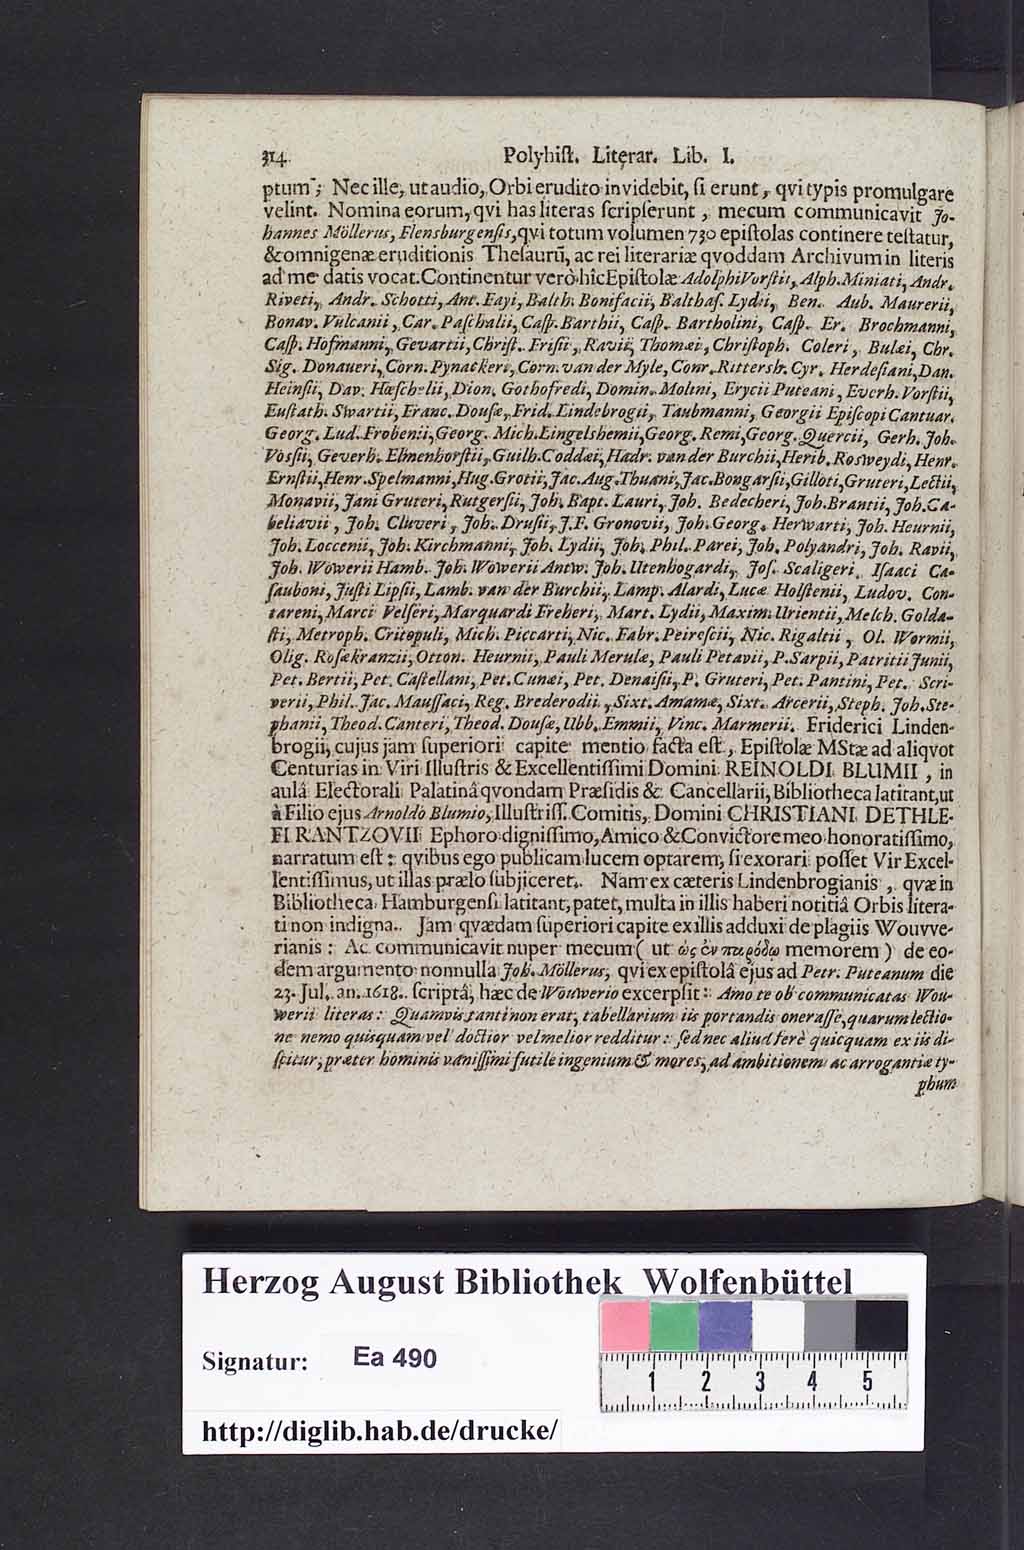 314. Polyhist. Literar. Lib. I.
ptum; Nec ille, ut audio, Orbi erudito invidebit, ſi erunt, qvi typis promulgare
velint. Nomina eorum, qvi has literas ſcripſerunt, mecum communicavit Jo-
hannes Möllerus, Flensburgenſis, qvi totum volumen 730 epiſtolas continere teſtatur,
& omnigenæ eruditionis Theſaurũ, ac rei literariæ qvoddam Archivum in literis
ad me datis vocat. Continentur verò hîc Epiſtolæ Adolphi Vorſtii, Alph. Miniati, Andr.
Riveti, Andr. Schotti, Ant. Fayi, Balth. Bonifacii, Balthaſ. Lydii, Ben. Aub. Maurerii,
Bonav. Vulcanii, Car. Paſchalii, Caſp. Barthii, Caſp. Bartholini, Caſp. Er. Brochmanni,
Caſp. Hofmanni, Gevartii, Chriſt. Friſii, Ravii, Thomæi, Chriſtoph. Coleri, Bulæi, Chr.
Sig. Donaueri, Corn. Pynackeri, Corn. van der Myle, Conr. Rittersh. Cyr. Herdeſiani, Dan.
Heinſii, Dav. Hœſchelii, Dion. Gothofredi, Domin. Molini, Erycii Puteani, Everh. Vorſtii,
Euſtath. Swartii, Franc. Douſæ, Frid. Lindebrogii, Taubmanni, Georgii Epiſcopi Cantuar.
Georg. Lud. Frobenii, Georg. Mich. Lingelshemii, Georg. Remi, Georg. Quercii, Gerh. Joh.
Vosſii, Geverh. Elmenhorſtii, Guilh. Coddæi, Hadr. van der Burchii, Herib. Rosweydi, Henr.
Ernſtii, Henr. Spelmanni, Hug. Grotii, Jac. Aug. Thuani, Jac. Bongarſii, Gilloti, Gruteri, Lectii,
Monavii, Jani Gruteri, Rutgerſii, Joh. Bapt. Lauri, Joh. Bedecheri, Joh. Brantii, Joh. Ca-
beliavii, Joh. Cluveri, Joh. Druſii, J. F. Gronovii, Joh. Georg. Herwarti, Joh. Heurnii,
Joh. Loccenii, Joh. Kirchmanni, Joh. Lydii, Joh. Phil. Parei, Joh. Polyandri, Joh. Ravii,
Joh. Wowerii Hamb. Joh. Wowerii Antw. Joh. Utenhogardi, Joſ. Scaligeri, Iſaaci Ca-
ſauboni, Juſti Lipſii, Lamb. van der Burchii, Lamp. Alardi, Lucæ Holſtenii, Ludov. Con-
tareni, Marci Velſeri, Marquardi Freheri, Mart. Lydii, Maxim. Urientii, Melch. Golda-
ſti, Metroph. Critopuli, Mich. Piccarti, Nic. Fabr. Peireſcii, Nic. Rigaltii, Ol. Wormii,
Olig. Roſækranzii, Otton. Heurnii, Pauli Merulæ, Pauli Petavii, P. Sarpii, Patritii Junii,
Pet. Bertii, Pet. Caſtellani, Pet. Cunæi, Pet. Denaiſii, P. Gruteri, Pet. Pantini, Pet. Scri-
verii, Phil. Jac. Mauſſaci, Reg. Brederodii, Sixt. Amamæ, Sixt. Arcerii, Steph. Joh. Ste-
phanii, Theod. Canteri, Theod. Douſæ, Ubb. Emmii, Vinc. Marmerii. Friderici Linden-
brogii, cujus jam ſuperiori capite mentio facta eſt, Epiſtolæ MStæ ad aliqvot
Centurias in Viri Illuſtris & Excellentiſſimi Domini REINOLDI BLUMII, in
aulâ Electorali Palatinâ qvondam Præſidis & Cancellarii, Bibliotheca latitant, ut
à Filio ejus Arnoldo Blumio, Illuſtriſſ. Comitis, Domini CHRISTIANI DETHLE-
FI RANTZOVII Ephoro digniſſimo, Amico & Convictore meo honoratiſſimo,
narratum eſt: qvibus ego publicam lucem optarem, ſi exorari poſſet Vir Excel-
lentiſſimus, ut illas prælo ſubjiceret. Nam ex cæteris Lindenbrogianis, qvæ in
Bibliotheca Hamburgenſi latitant, patet, multa in illis haberi notitiâ Orbis litera-
ti non indigna. Jam qvædam ſuperiori capite ex illis adduxi de plagiis Wouvve-
rianis: Ac communicavit nuper mecum (ut ὡς ἐν παρόδῳ memorem) de eo-
dem argumento nonnulla Joh. Möllerus, qvi ex epiſtolâ ejus ad Petr. Puteanum die
23. Jul. an. 1618. ſcriptâ, hæc de Wouwerio excerpſit: Amo te ob communicatas Wou-
werii literas: Quamvis tanti non erat, tabellarium iis portandis oneraſſe, quarum lectio-
ne nemo quisquam vel doctior vel melior redditur: ſed nec aliud ferè quicquam ex iis di-
ſcitur, præter hominis vaniſſimi futile ingenium & mores, ad ambitionem ac arrogantiæ ty-
phum
Herzog August Bibliothek Wolfenbüttel
Signatur: Ea 490
1 2 3 4 5
http://diglib.hab.de/drucke/